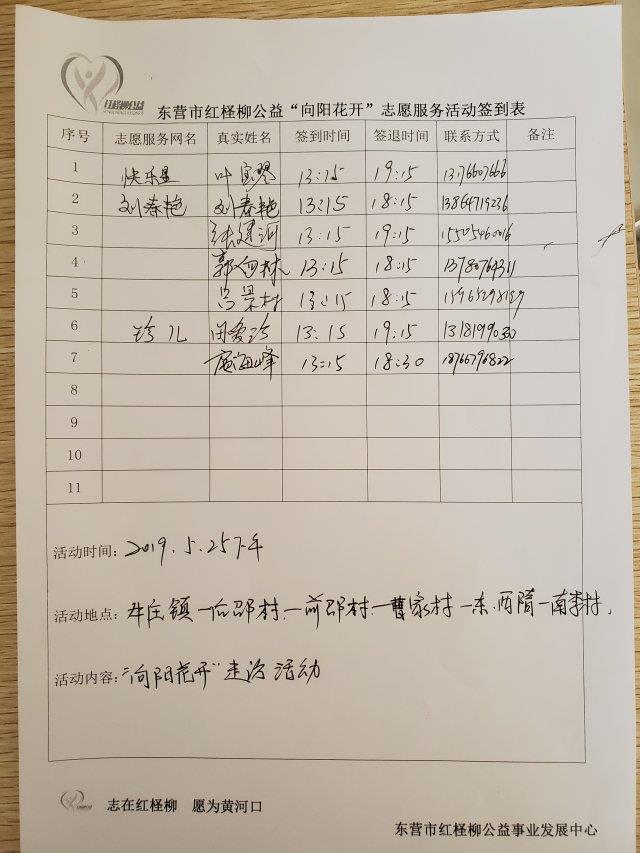 红柽柳公益
东营市红柽柳公益“向阳花开”志愿服务活动签到表
序号 志愿服务网名 真实姓名 签到时间 签退时间 联系方式 备注
1 快乐星 叶宝琴 13:15 19:15 13176607666
2 刘春艳 刘春艳 13:15 18:15 13864719236
3 张建河 13:15 19:15
4 13:15 18:15 13780764311
5 吕景村 13:15 18:15
6 珍儿 闫爱珍 13:15 19:15
7 海峰 13:15 18:30 18766796822
8
9
10
11
活动时间：2019.5.25下午
活动地点：牛庄镇—后邵村.—前邵村.—曹家村—东.西隋—南李村.
活动内容：“向阳花开”走访活动
志在红柽柳 愿为黄河口
东营市红柽柳公益事业发展中心